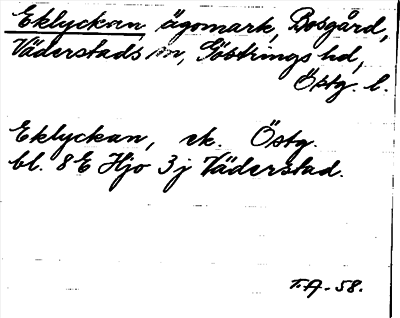 Eklyckan, ägomark, Bosgård,
Väderstads sn, Göstrings hd,
Östg. l.
Eklyckan, ek. Östg.
bl. 8E Hjo 3j Väderstad.
T.A-58.